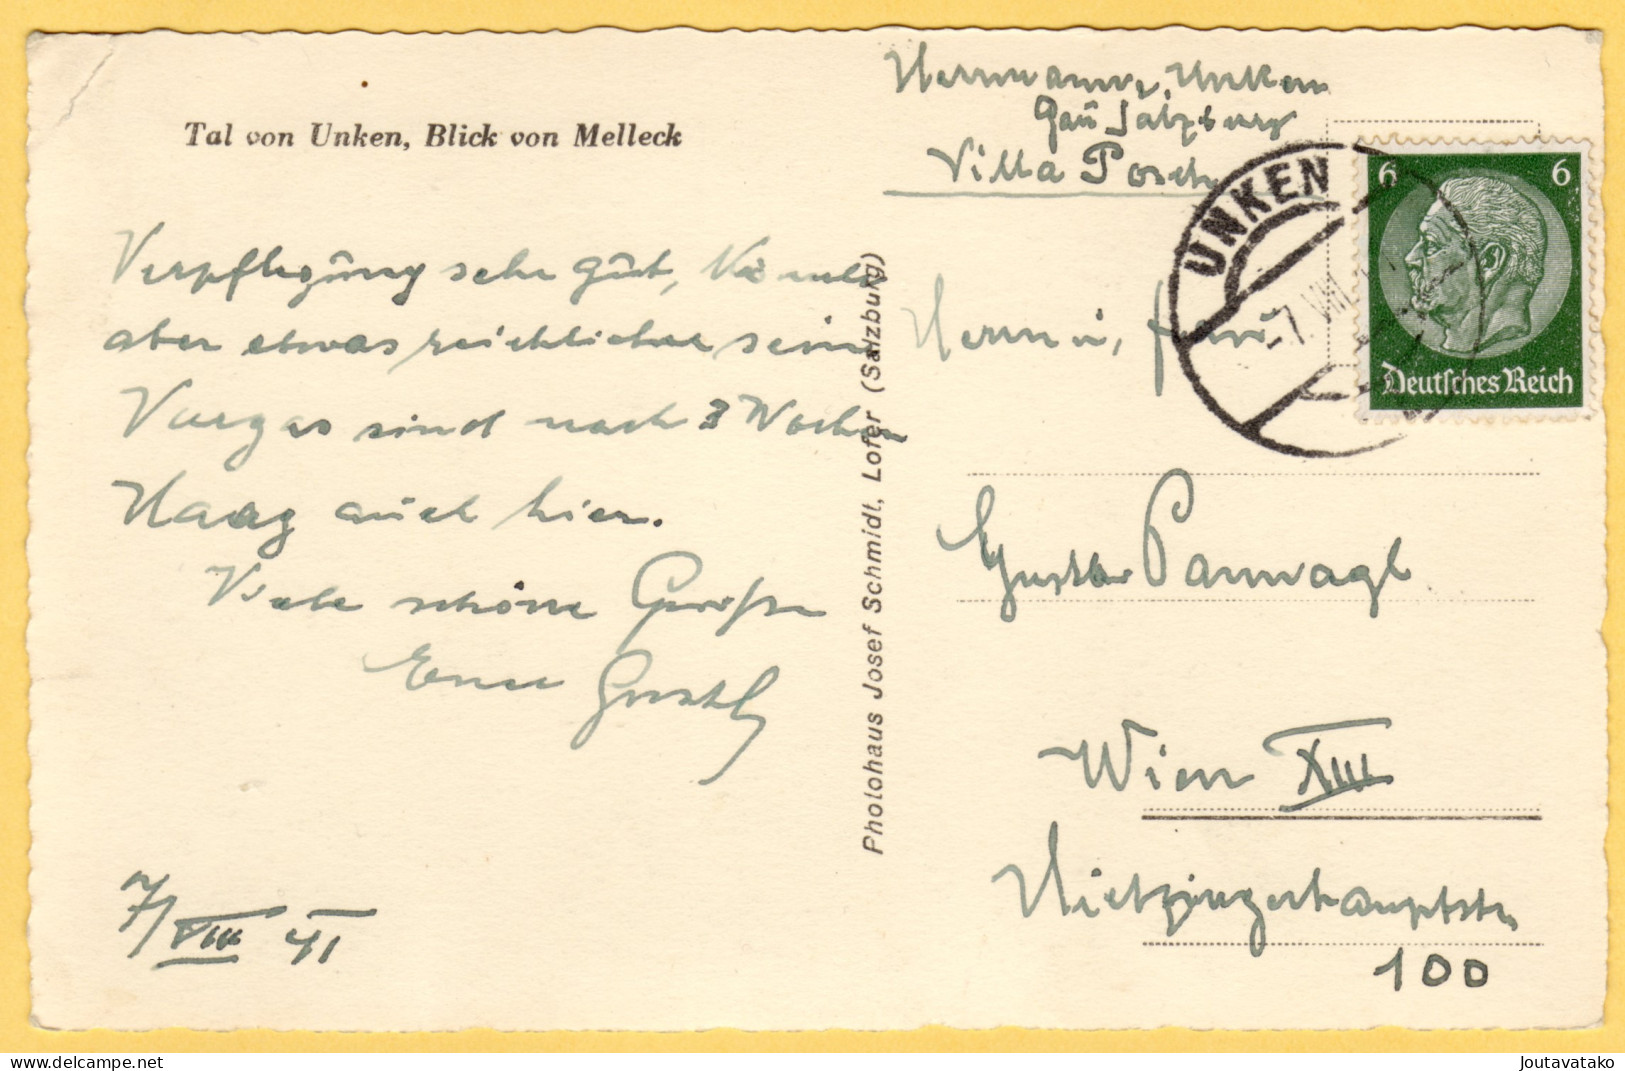 Tal von Unken, Blick von Melleck
Verpflegung sehr gut,
aber etwas reichlicher sein
sind nach 3 Wochen
Haag auch hier.
Viele schöne Grüße
7/VIII 41
Photohaus Josef Schmidl, Lofer (Salzburg)
Herrmann, Unken
Gau Salzburg
Villa Posch
UNKEN
-7.VIII.
6 6
Deutsches Reich
Herrn u. Frau
Gustav Pannagl
Wien XIII
Hietzingerhauptstr
100
joutavatako